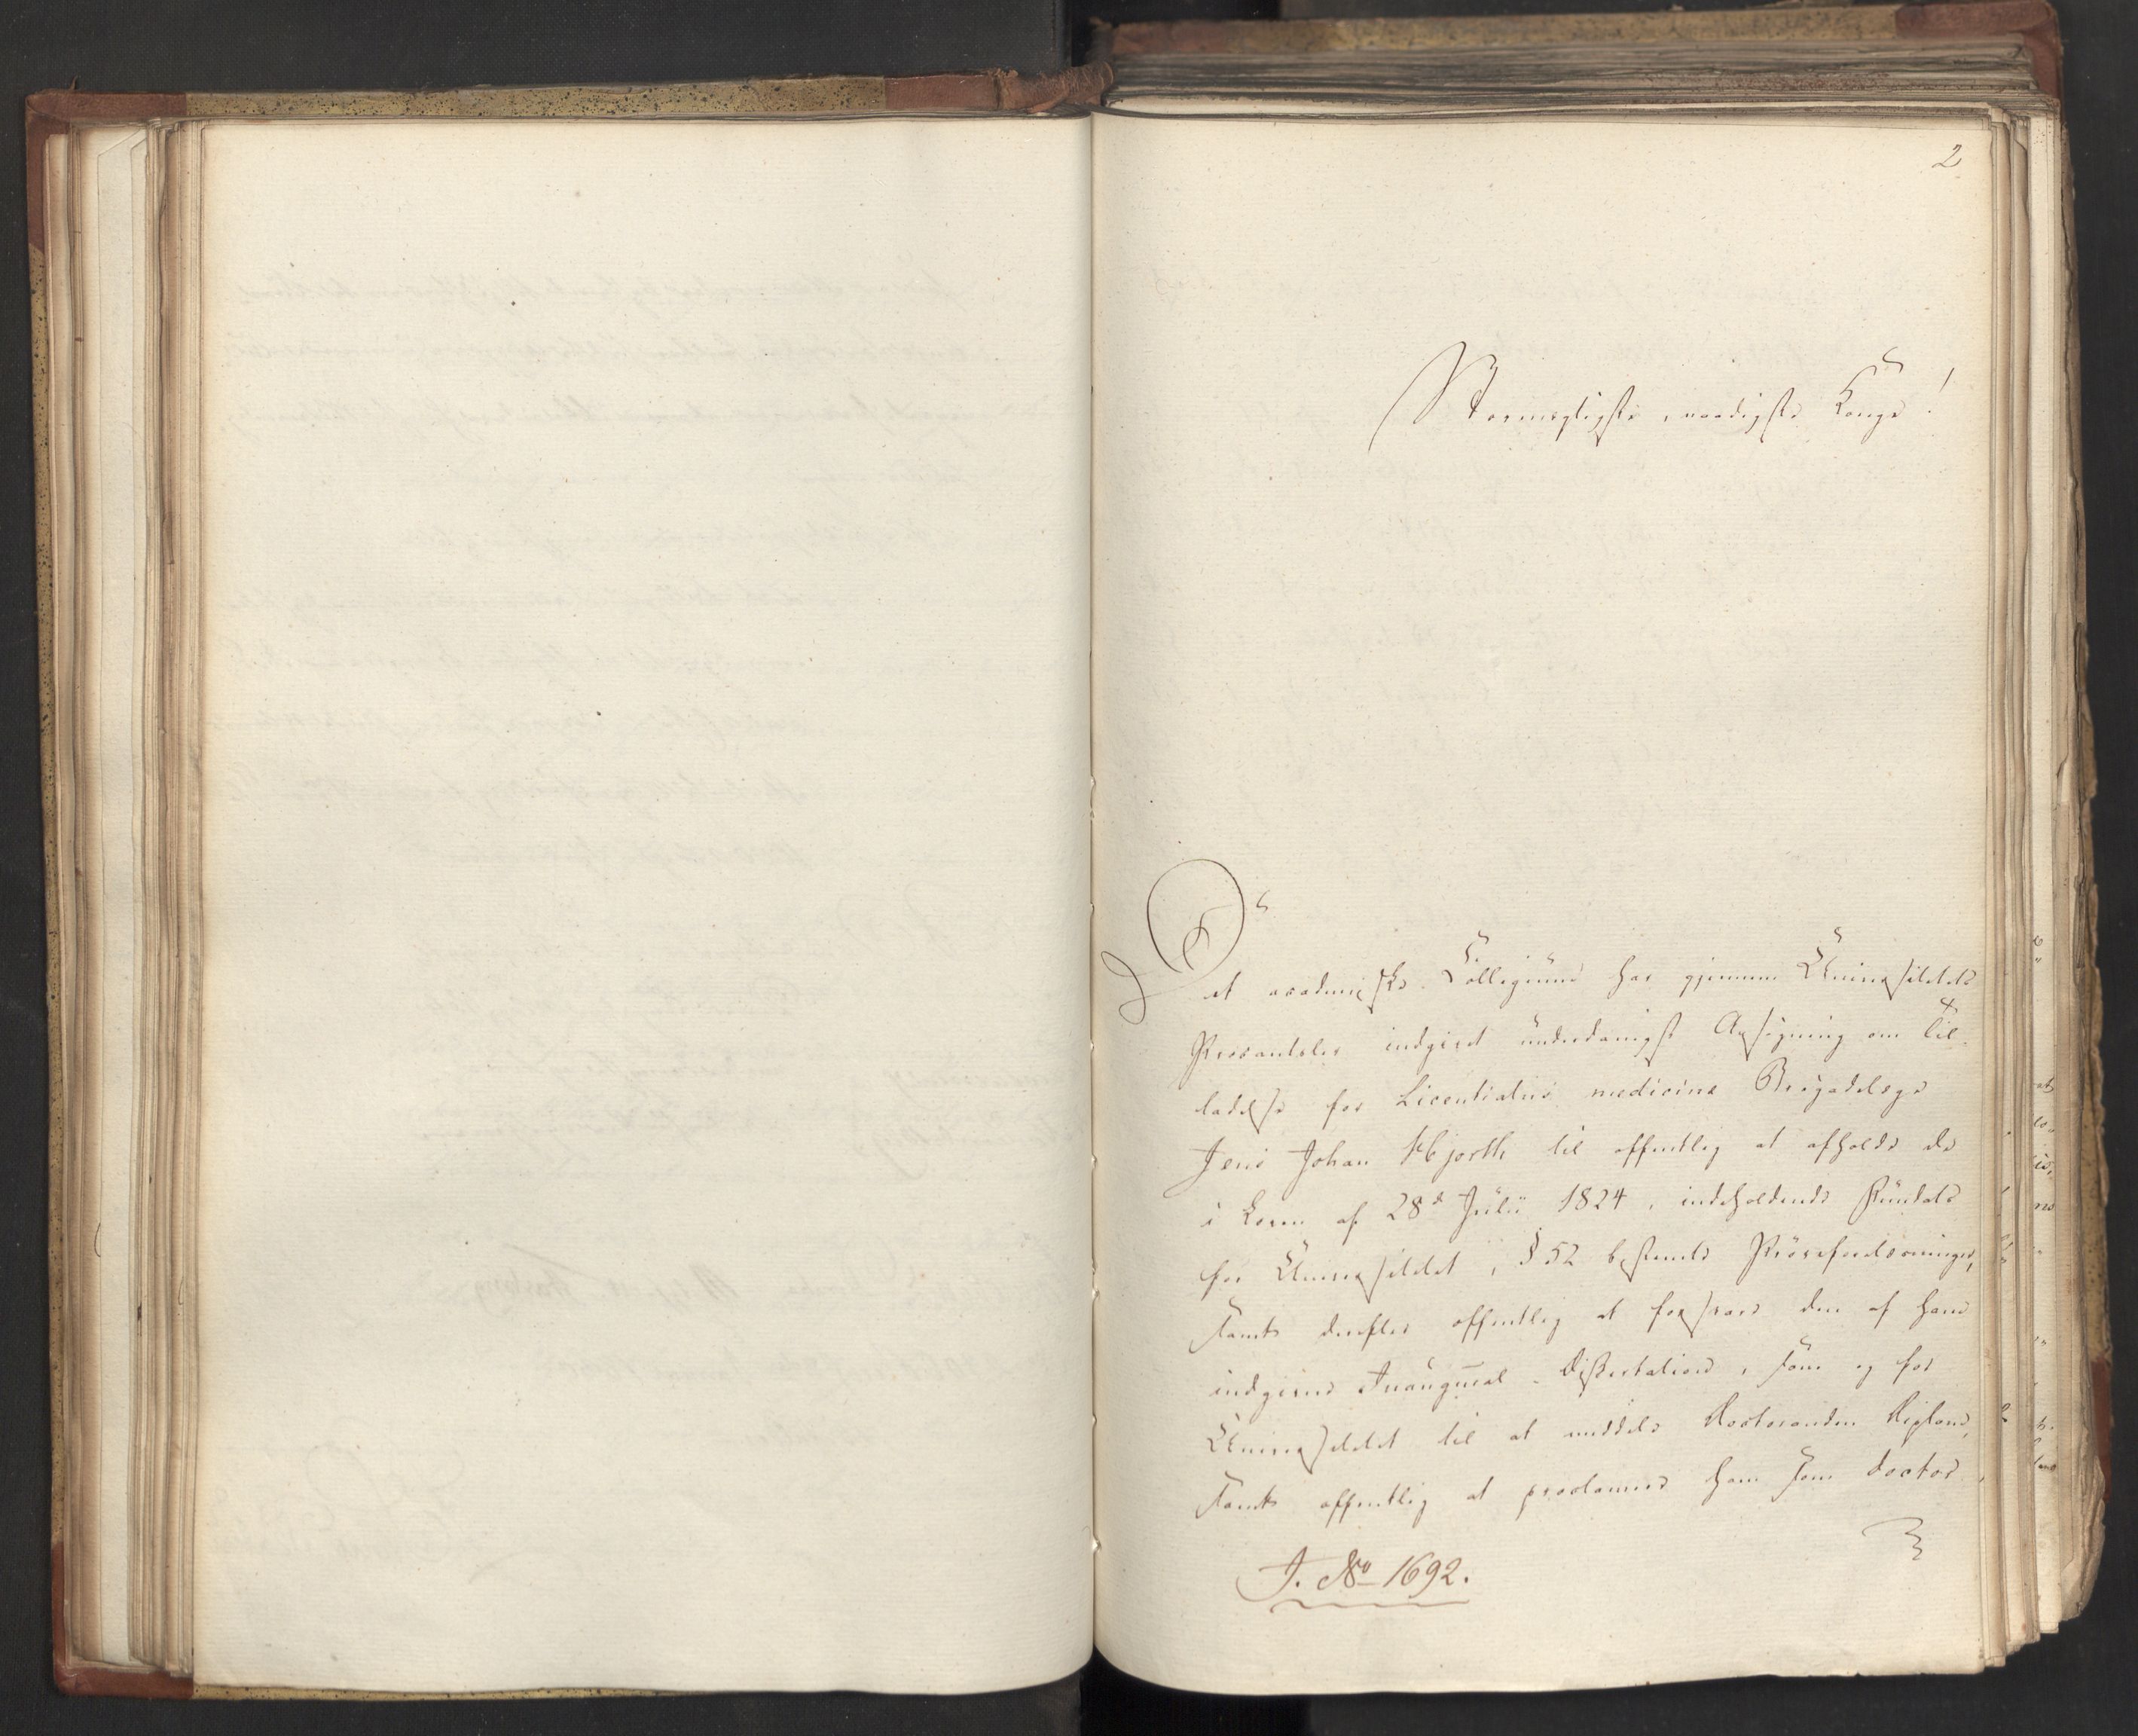 2
Stormægtigste, naadigste Konge!
Det academiske Collegium har gjennem Universitetets
Procantsler indgivet underdanigst Ansøgning om Til-
ladelse for Licentiatus medicinæ Brigadelæge
Jens Johan Hjorth til offentlig at afholde de
i Loven af 28de Julii 1824, indeholdende Fundats
for Universitetet, § 52 bestemte Prøveforelæsninger,
samt derefter offentlig at forsvare den af ham
indgivne Inaugural-Dissertation, som og for
Universitetet til at meddele Doctoranden Diplom,
samt offentlig at proclamere ham som Doctor,
J. No 1692.